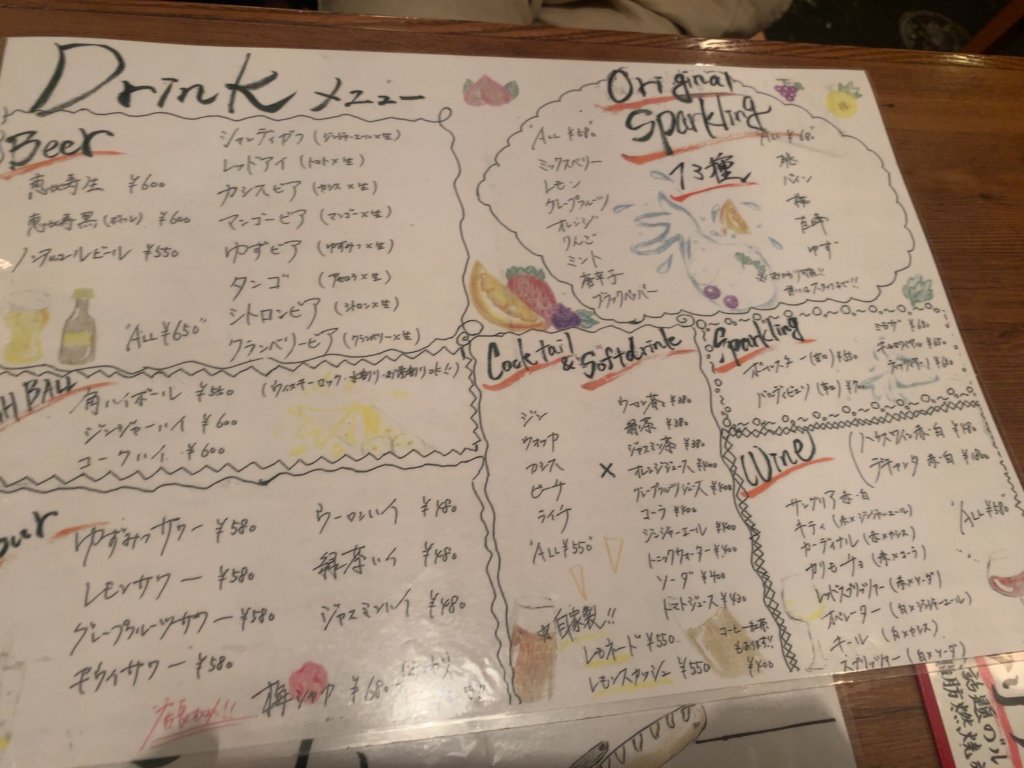 Drink メニュー
Beer
恵比寿生 ¥600
恵比寿黒(ボトル) ¥600
ノンアルコールビール ¥550
シャンディガフ (ジンジャーエール×生)
レッドアイ (トマト×生)
カシスビア (カシス×生)
マンゴービア (マンゴー×生)
ゆずビア (ゆずみつ×生)
タンゴ
シトロンビア (シトロン×生)
クランベリービア (クランベリー×生)
"ALL ¥650"
H BALL
角ハイボール ¥550
ジンジャーハイ ¥600
コークハイ ¥600
(ウィスキーロック・水割り・お湯割りOK!!)
our
ゆずみつサワー ¥580
レモンサワー ¥580
グレープフルーツサワー ¥580
キウイサワー ¥580
ウーロンハイ ¥480
緑茶ハイ ¥480
ジャスミンハイ ¥480
梅シャワ ¥680
Original
Sparkling
13種
"ALL ¥580"
ミックスベリー
レモン
グレープフルーツ
オレンジ
りんご
ミント
唐辛子
ブラックペッパー
"ALL ¥680"
桃
パイン
梅
巨峰
ゆず
Cocktail & Softdrink
ジン
ウォッカ
カシス
ピーチ
ライチ
"ALL ¥550"
×
ウーロン茶 ¥380
緑茶 ¥380
ジャスミン茶 ¥380
オレンジジュース ¥400
グレープフルーツジュース ¥400
コーラ ¥400
ジンジャーエール ¥400
トニックウォーター ¥400
ソーダ ¥400
トマトジュース ¥430
自家製!!
レモネード ¥550
レモンスカッシュ ¥550
コーヒー・紅茶
もあります!!
¥400
Sparkling
ミモザ ¥650
Wine
ハウスワイン 赤・白 ¥480
デキャンタ 赤・白 ¥1800
サングリア 赤・白
キティ (赤×ジンジャーエール)
カーディナル (赤×カシス)
カリモーチョ (赤×コーラ)
レッドスプリッツァー (赤×ソーダ)
オペレーター (白×ジンジャーエール)
キール (白×カシス)
スプリッツァー (白×ソーダ)
"ALL ¥580"
話題の
脂肪燃焼